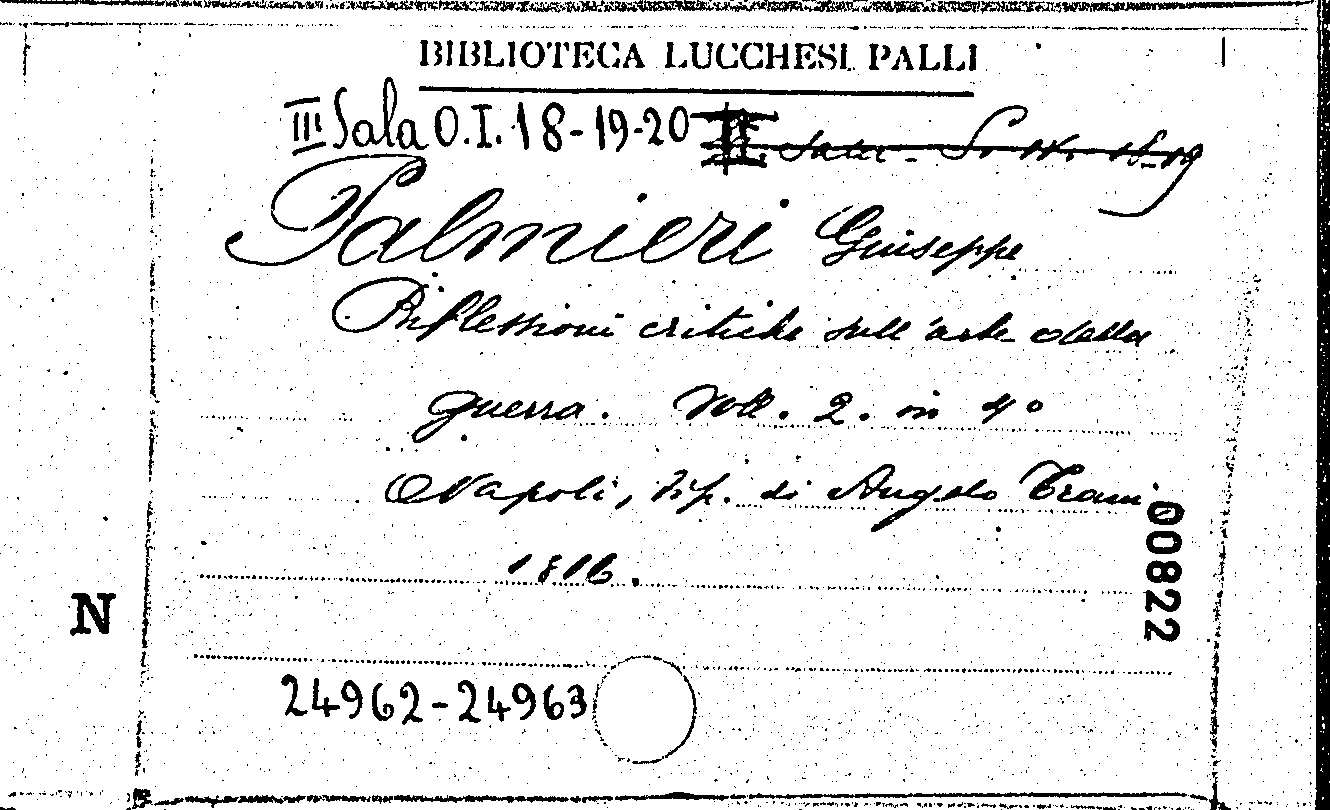 BIBLIOTECA LUCCHESI PALLI
III Sala O.I. 18-19-20
Palmieri Giuseppe
Riflessioni critiche sull'arte della
guerra. Voll. 2. in 4º
Napoli, tip. di Angelo Trani
1816.
00822
N
24962-24963